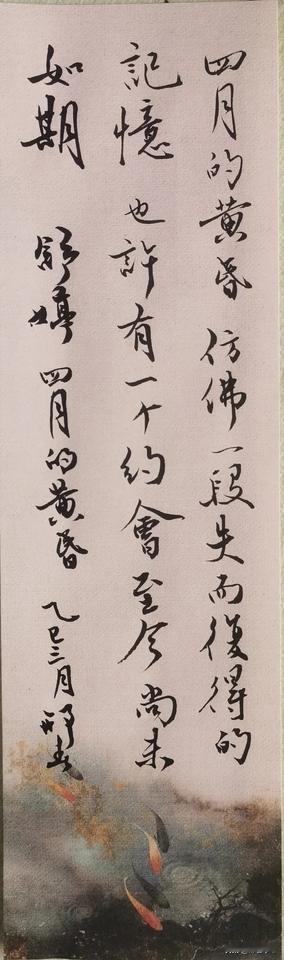 四月的黄昏 仿佛一段失而復得的
記憶 也許有一个約會至今尚未
如期 舒婷 四月的黄昏 乙巳三月